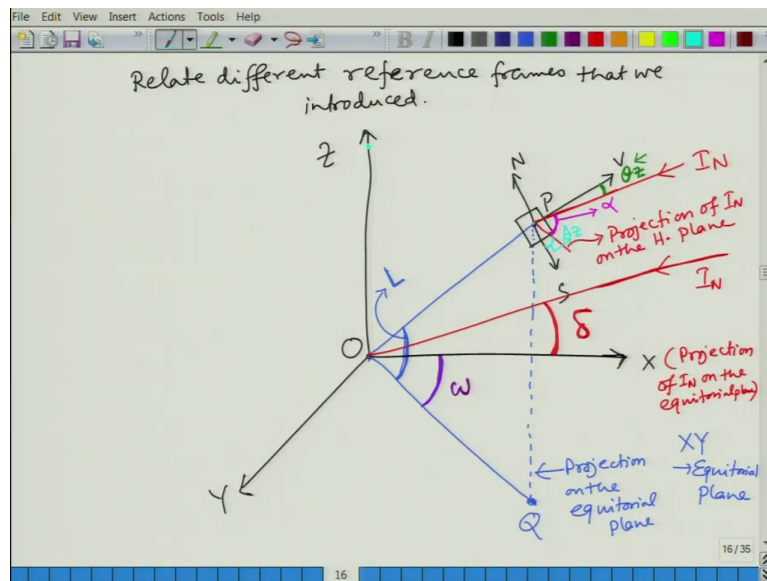 File Edit View Insert Actions Tools Help
B I
Relate different reference frames that we
introduced.
Z
N
P
V
θz
I_N
α
Az
Projection of I_N
on the H. plane
S
I_N
L
O
δ
ω
X (Projection
of I_N on the
equitorial plane)
Y
Q
Projection
on the
equitorial
plane
XY
→ Equitorial
Plane
16/35
16